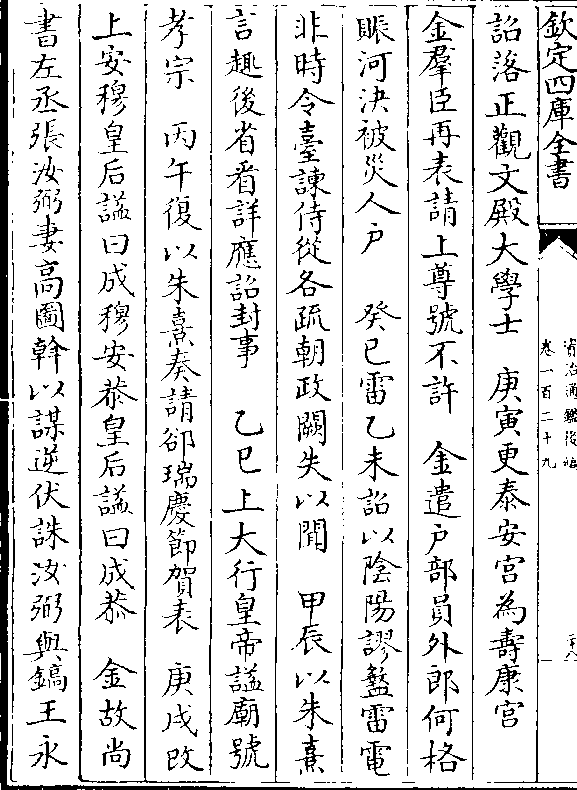 欽定四庫全書
資治通鑑後編
卷一百二十九
詔落正觀文殿大學士　庚寅更泰安宮為壽康宮
金羣臣再表請上尊號不許　金遣户部員外郎何格
賑河決被災人户　癸巳雷乙未詔以陰陽謬盭雷電
非時令臺諫侍從各疏朝政闕失以聞　甲辰以朱熹
言趣後省看詳應詔封事　乙巳上大行皇帝諡廟號
孝宗　丙午復以朱熹奏請卻瑞慶節賀表　庚戌改
上安穆皇后諡曰成穆安恭皇后諡曰成恭　金故尚
書左丞張汝弼妻高圖幹以謀逆伏誅汝弼與鎬王永